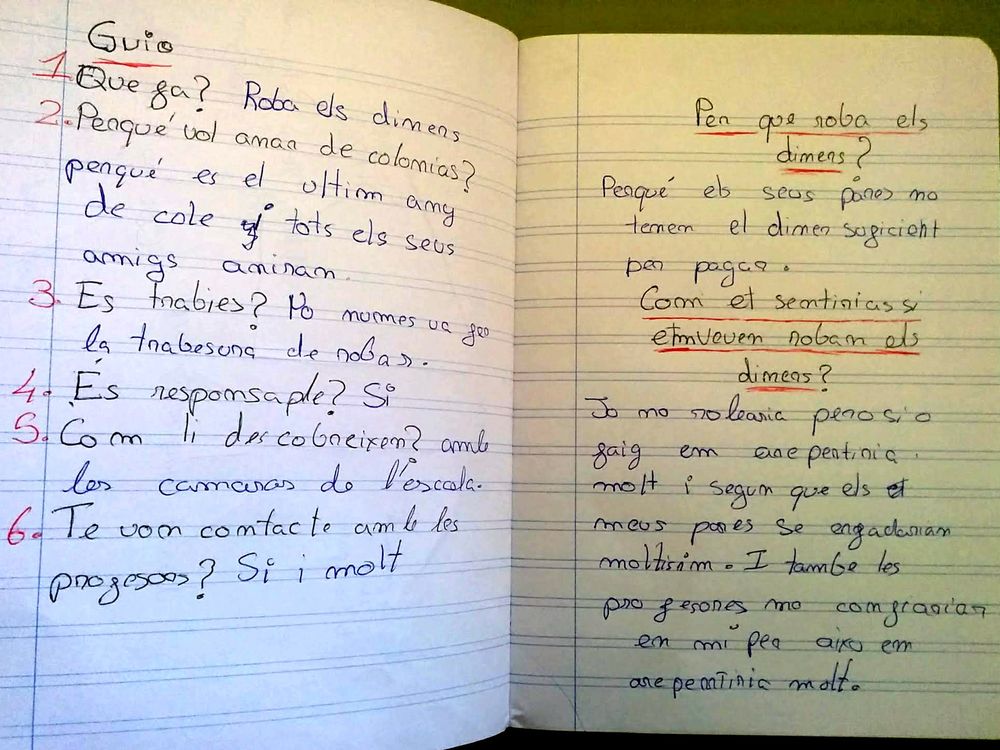 Guio
1. Que fa? Roba els diners
2. Perqué vol anar de colonias?
perqué es el ultim any
de cole i tots els seus
amigs aniran.
3. Es trabies? No nurmes va fer
la trabesura de robar.
4. És responsaple? Si
5. Com li descobreixen? amb
les camaras de l'escala.
6. Te von contacte amb les
profesoos? Si i molt
Per que roba els
diners?
Perqué els seus pares no
tenen el diner suficient
per pagar.
Com et sentirias si
etnvoven roban els
diners?
Jo no rolearia pero si o
faig em arepentiria.
molt i segur que els
meus pares se enfadarian
moltisim. I tambe les
profesores no confiarian
en mi per aixo em
arepentiria molt.